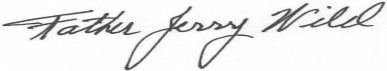 Father Jerry Wild